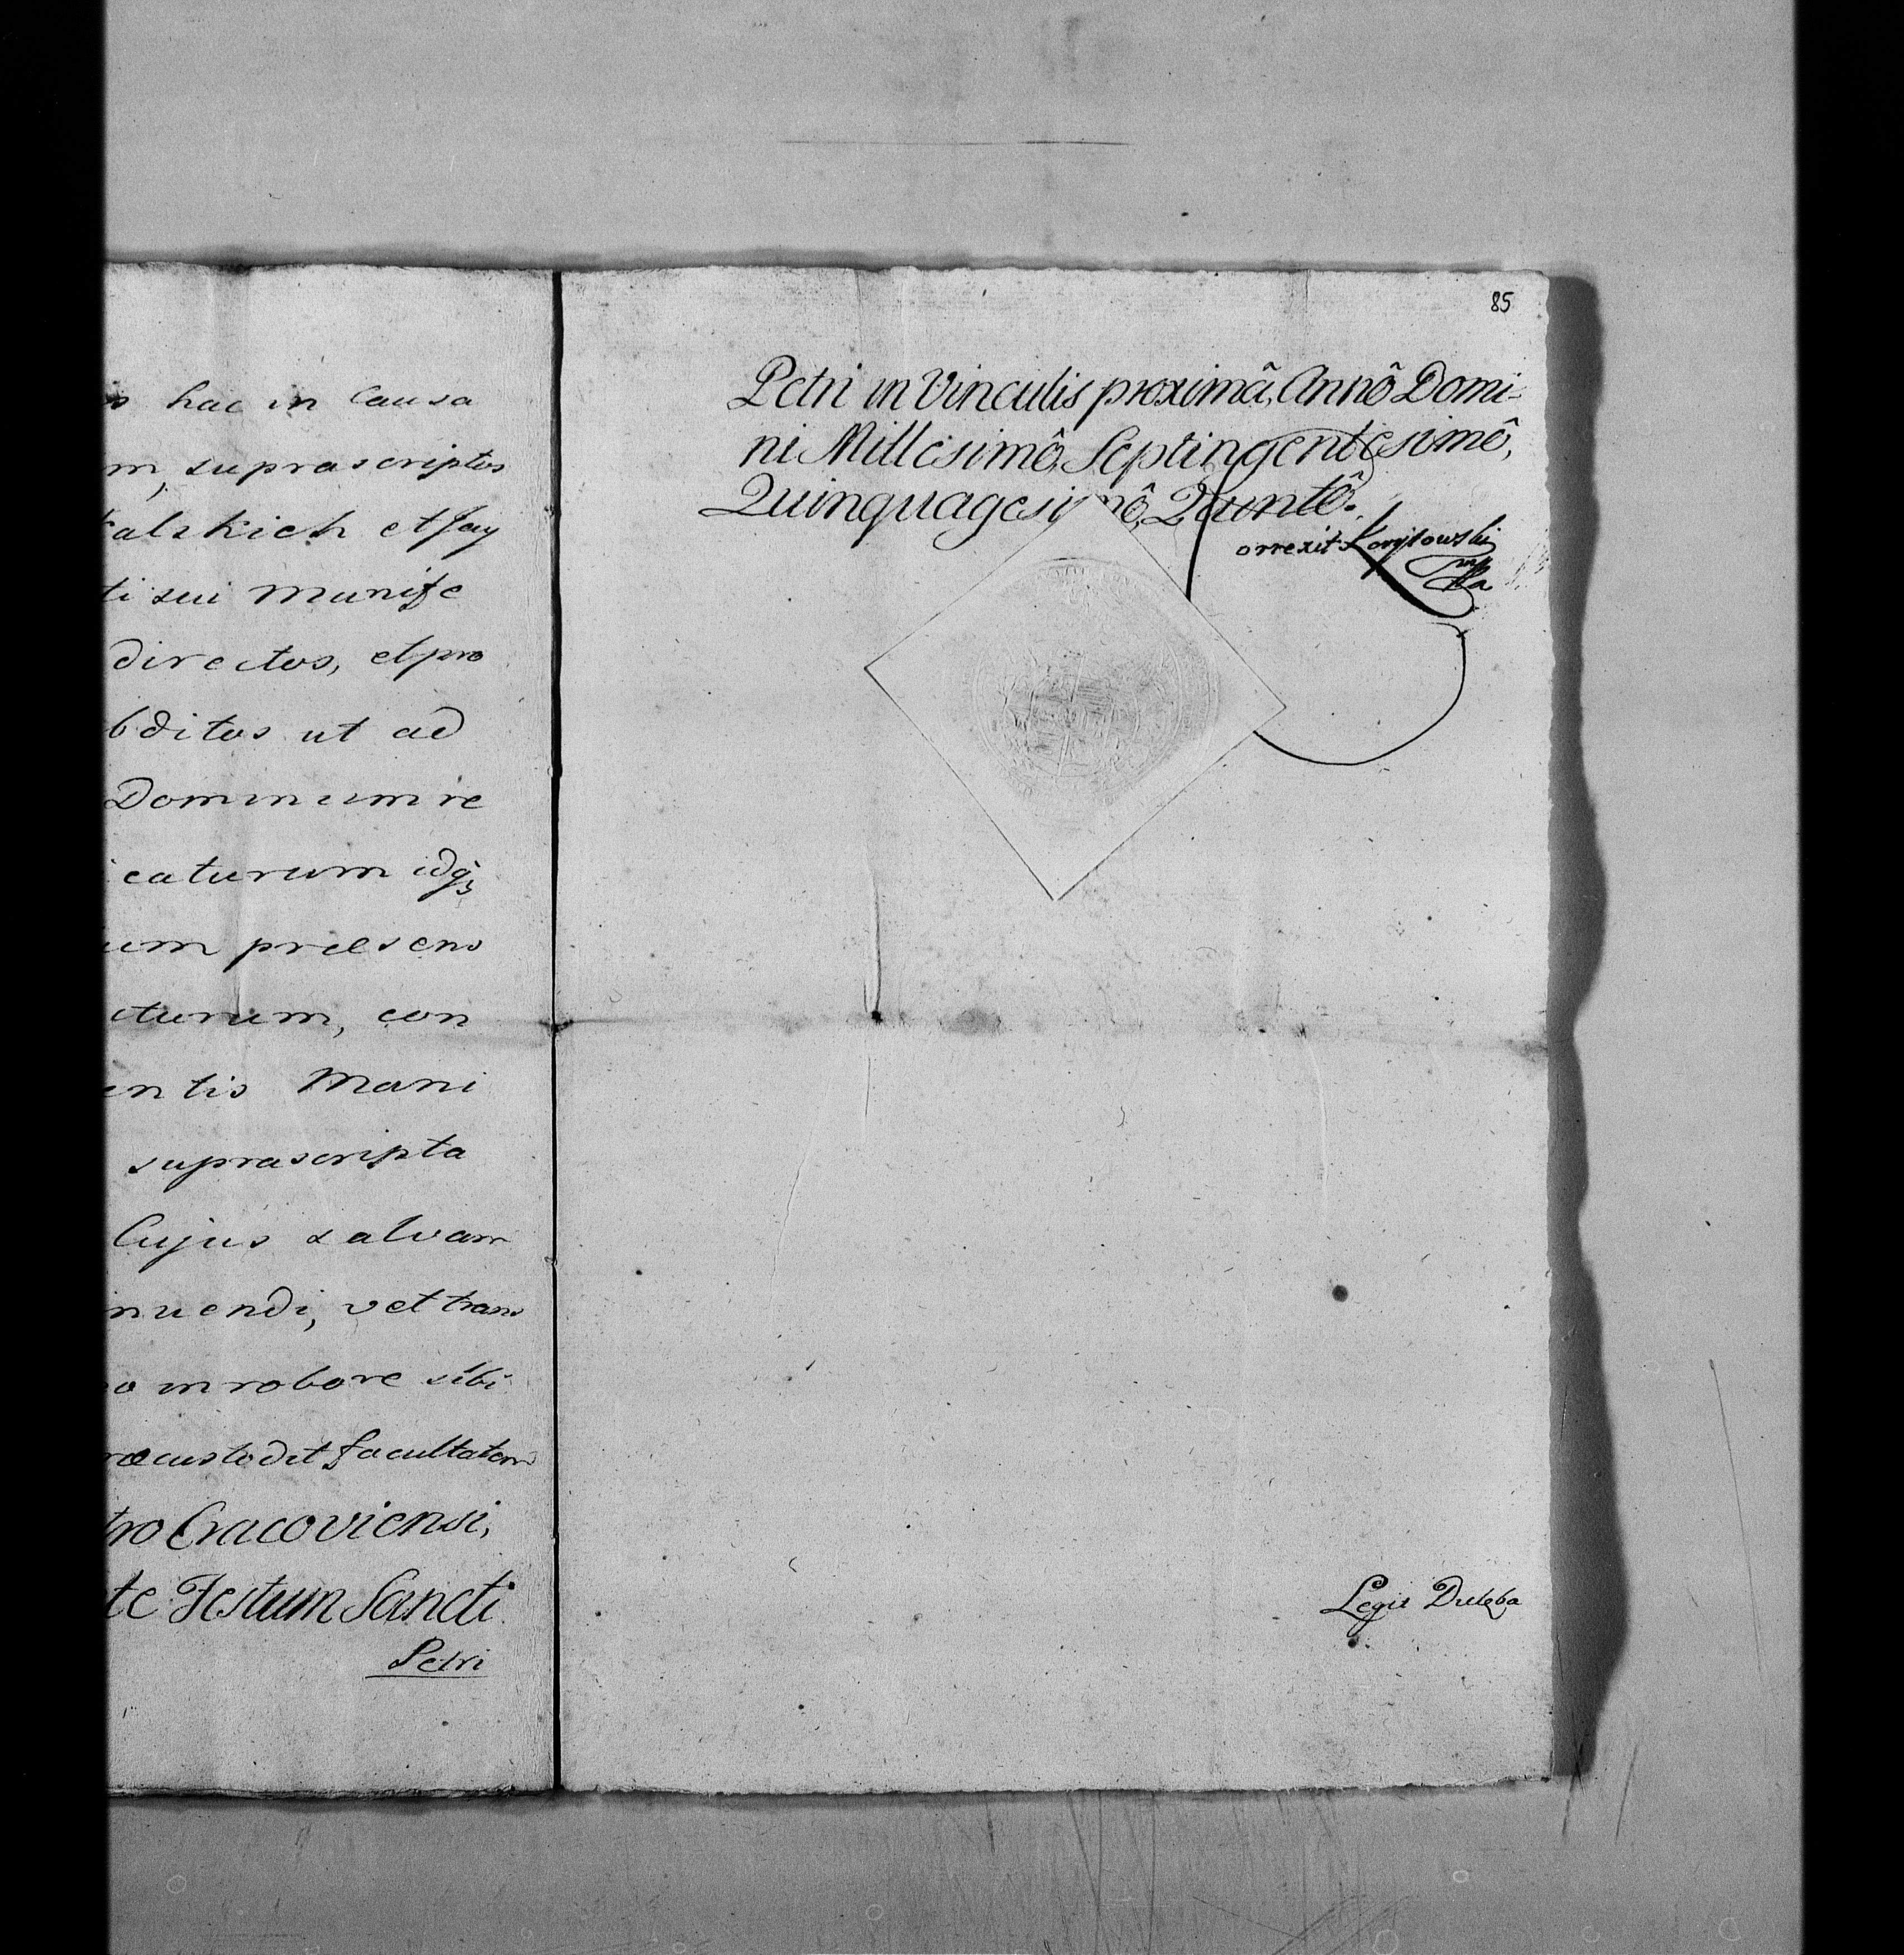 hac in Causa
m, suprascriptos
kalskich et Jay
ti sui Munife
directos, et pro
bditos ut ad
Dominum re
caturum idq;
um præsens
cturum, con
entis Mani
suprascripta
Cujus salvam
nuendi, vel trans
o in robore sibi
ræcustodit facultatem
tro Cracoviensi,
te Festum Sancti
Petri
85
Petri in Vinculis proximâ, Annô Domi-
ni Millesimô, Septingentesimô,
Quinquagesimô, Quintô.
Correxit
mp
Legit Duleba